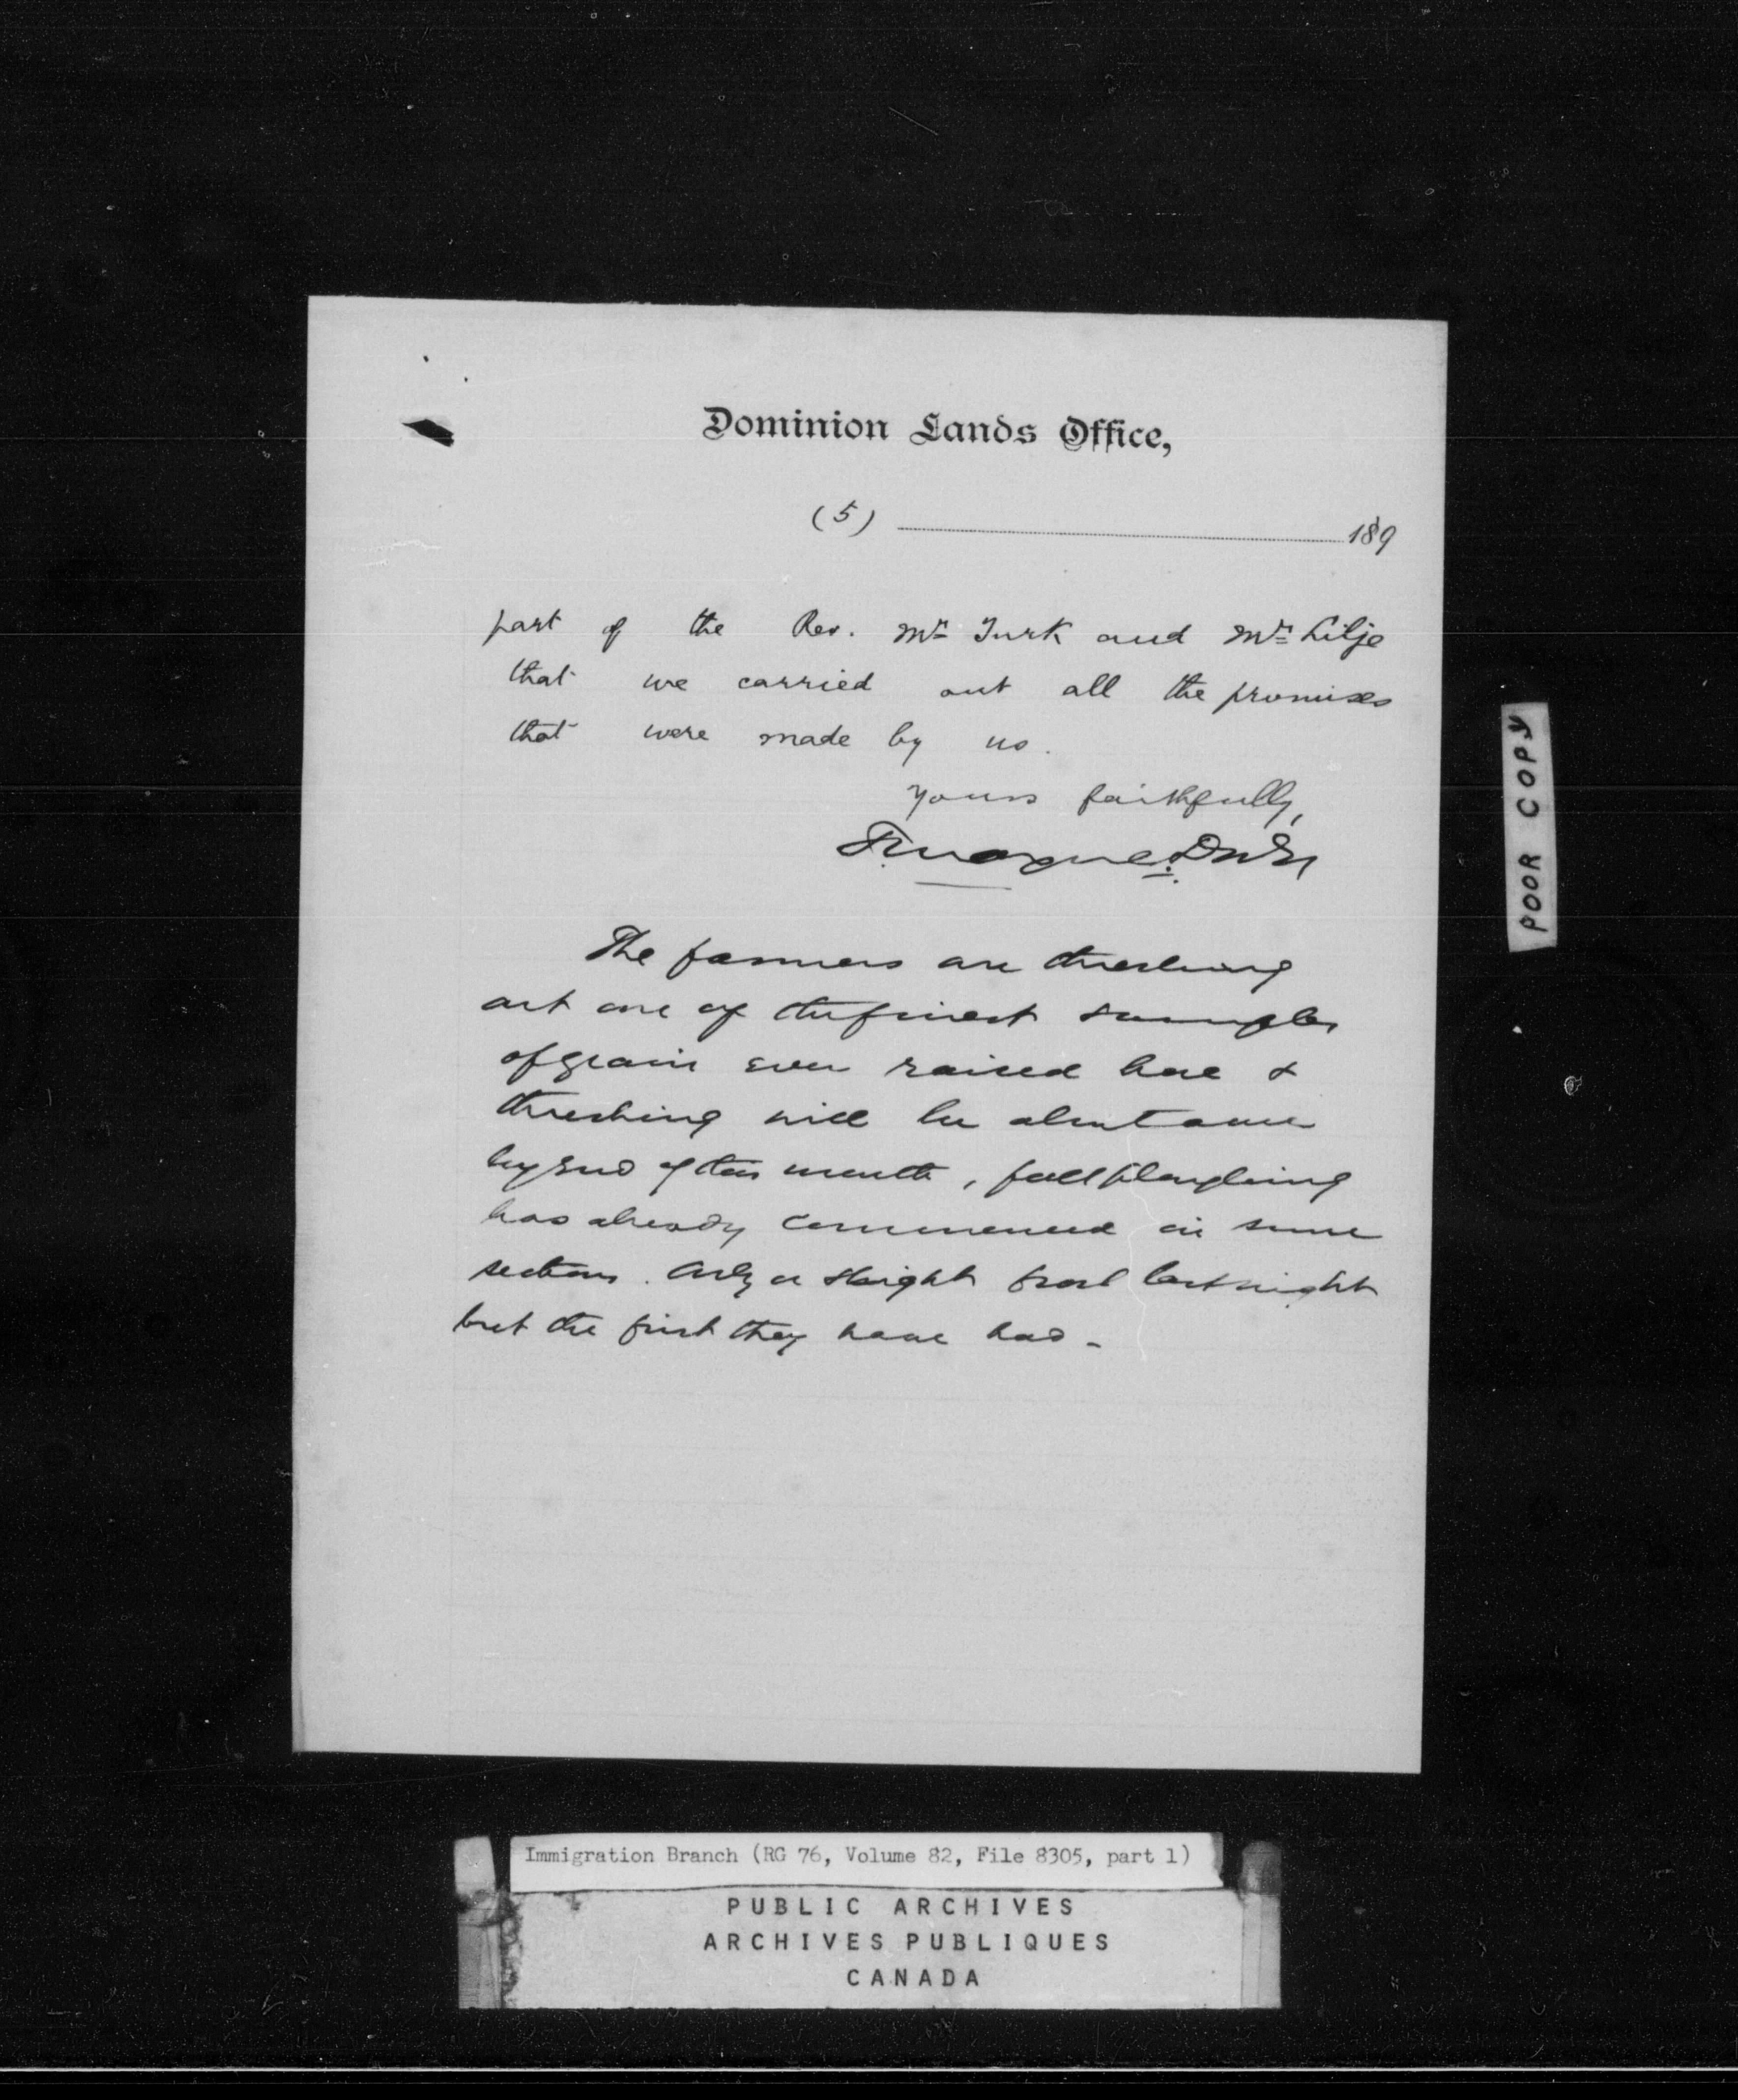 Dominion Lands Office,
(5) 189
part of the Rev. Mr Turk and Mr Lilje
that we carried out all the promises
that were made by us.
Yours faithfully,
The farmers are threshing
out one of the finest samples
of grain ever raised here &
threshing will be about over
by end of this month, fall ploughing
has already commenced in some
sections. Only a slight frost last night
but the first they have had -
POOR COPY
Immigration Branch (RG 76, Volume 82, File 8305, part 1)
PUBLIC ARCHIVES
ARCHIVES PUBLIQUES
CANADA